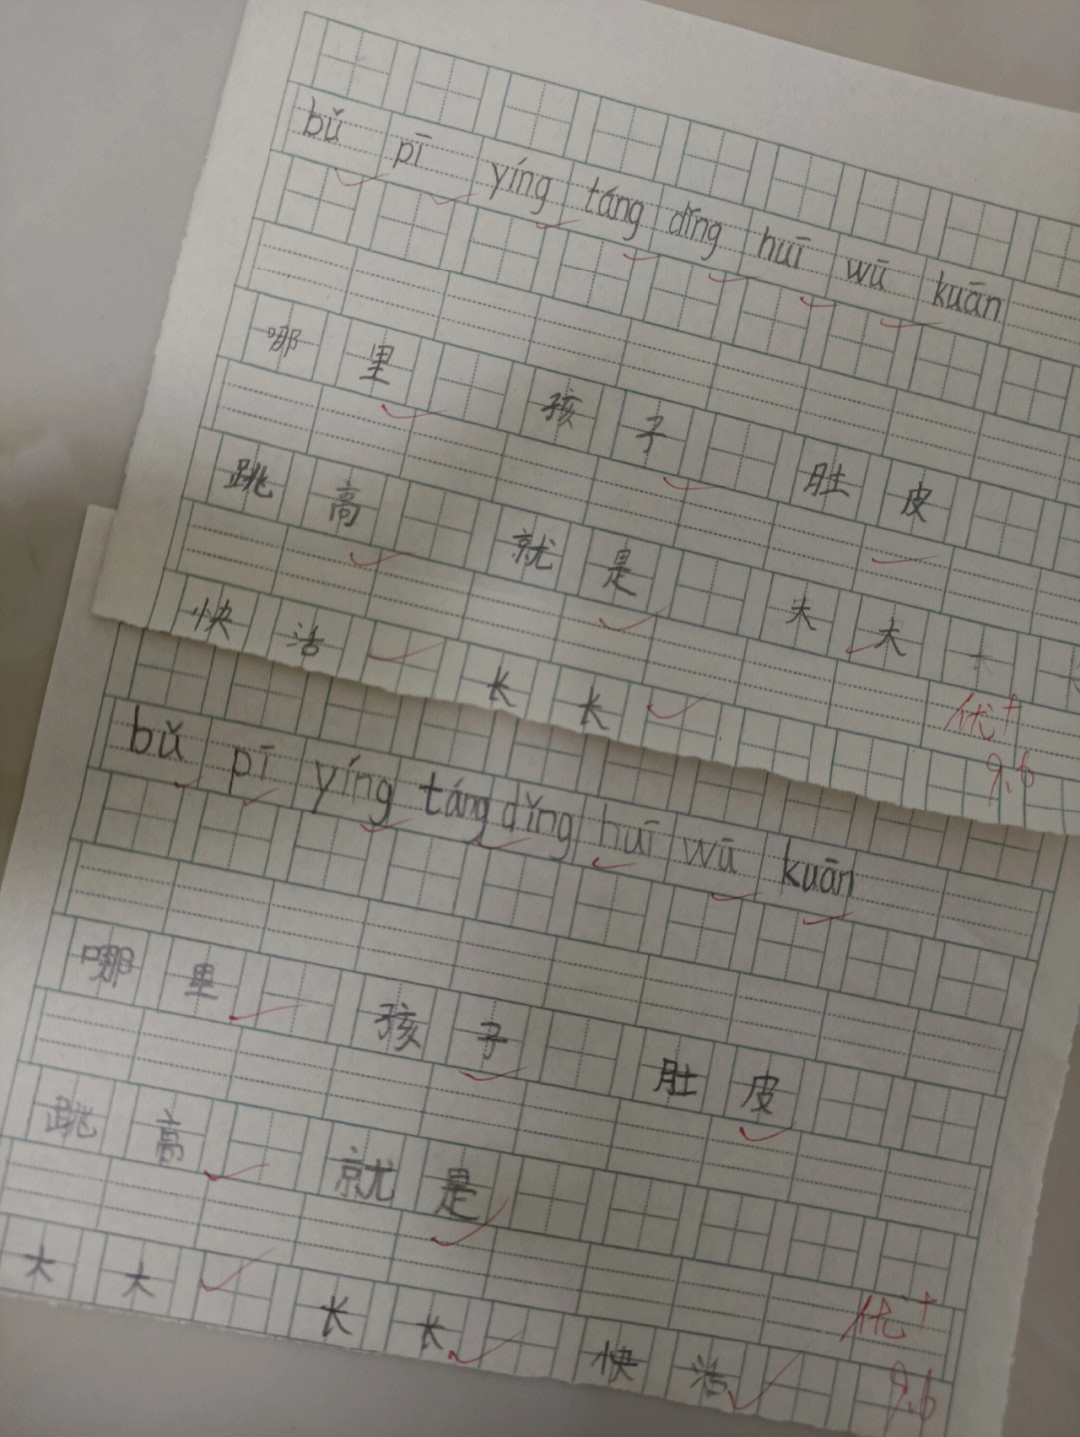 bǔ pī yíng táng dǐng huī wū kuān
哪里 孩子 肚皮
跳高 就是 大大
快活 长长
优+
9.6
bǔ pī yíng táng dǐng huī wū kuān
哪里 孩子 肚皮
跳高 就是
大大 长长 快活
优+
9.6